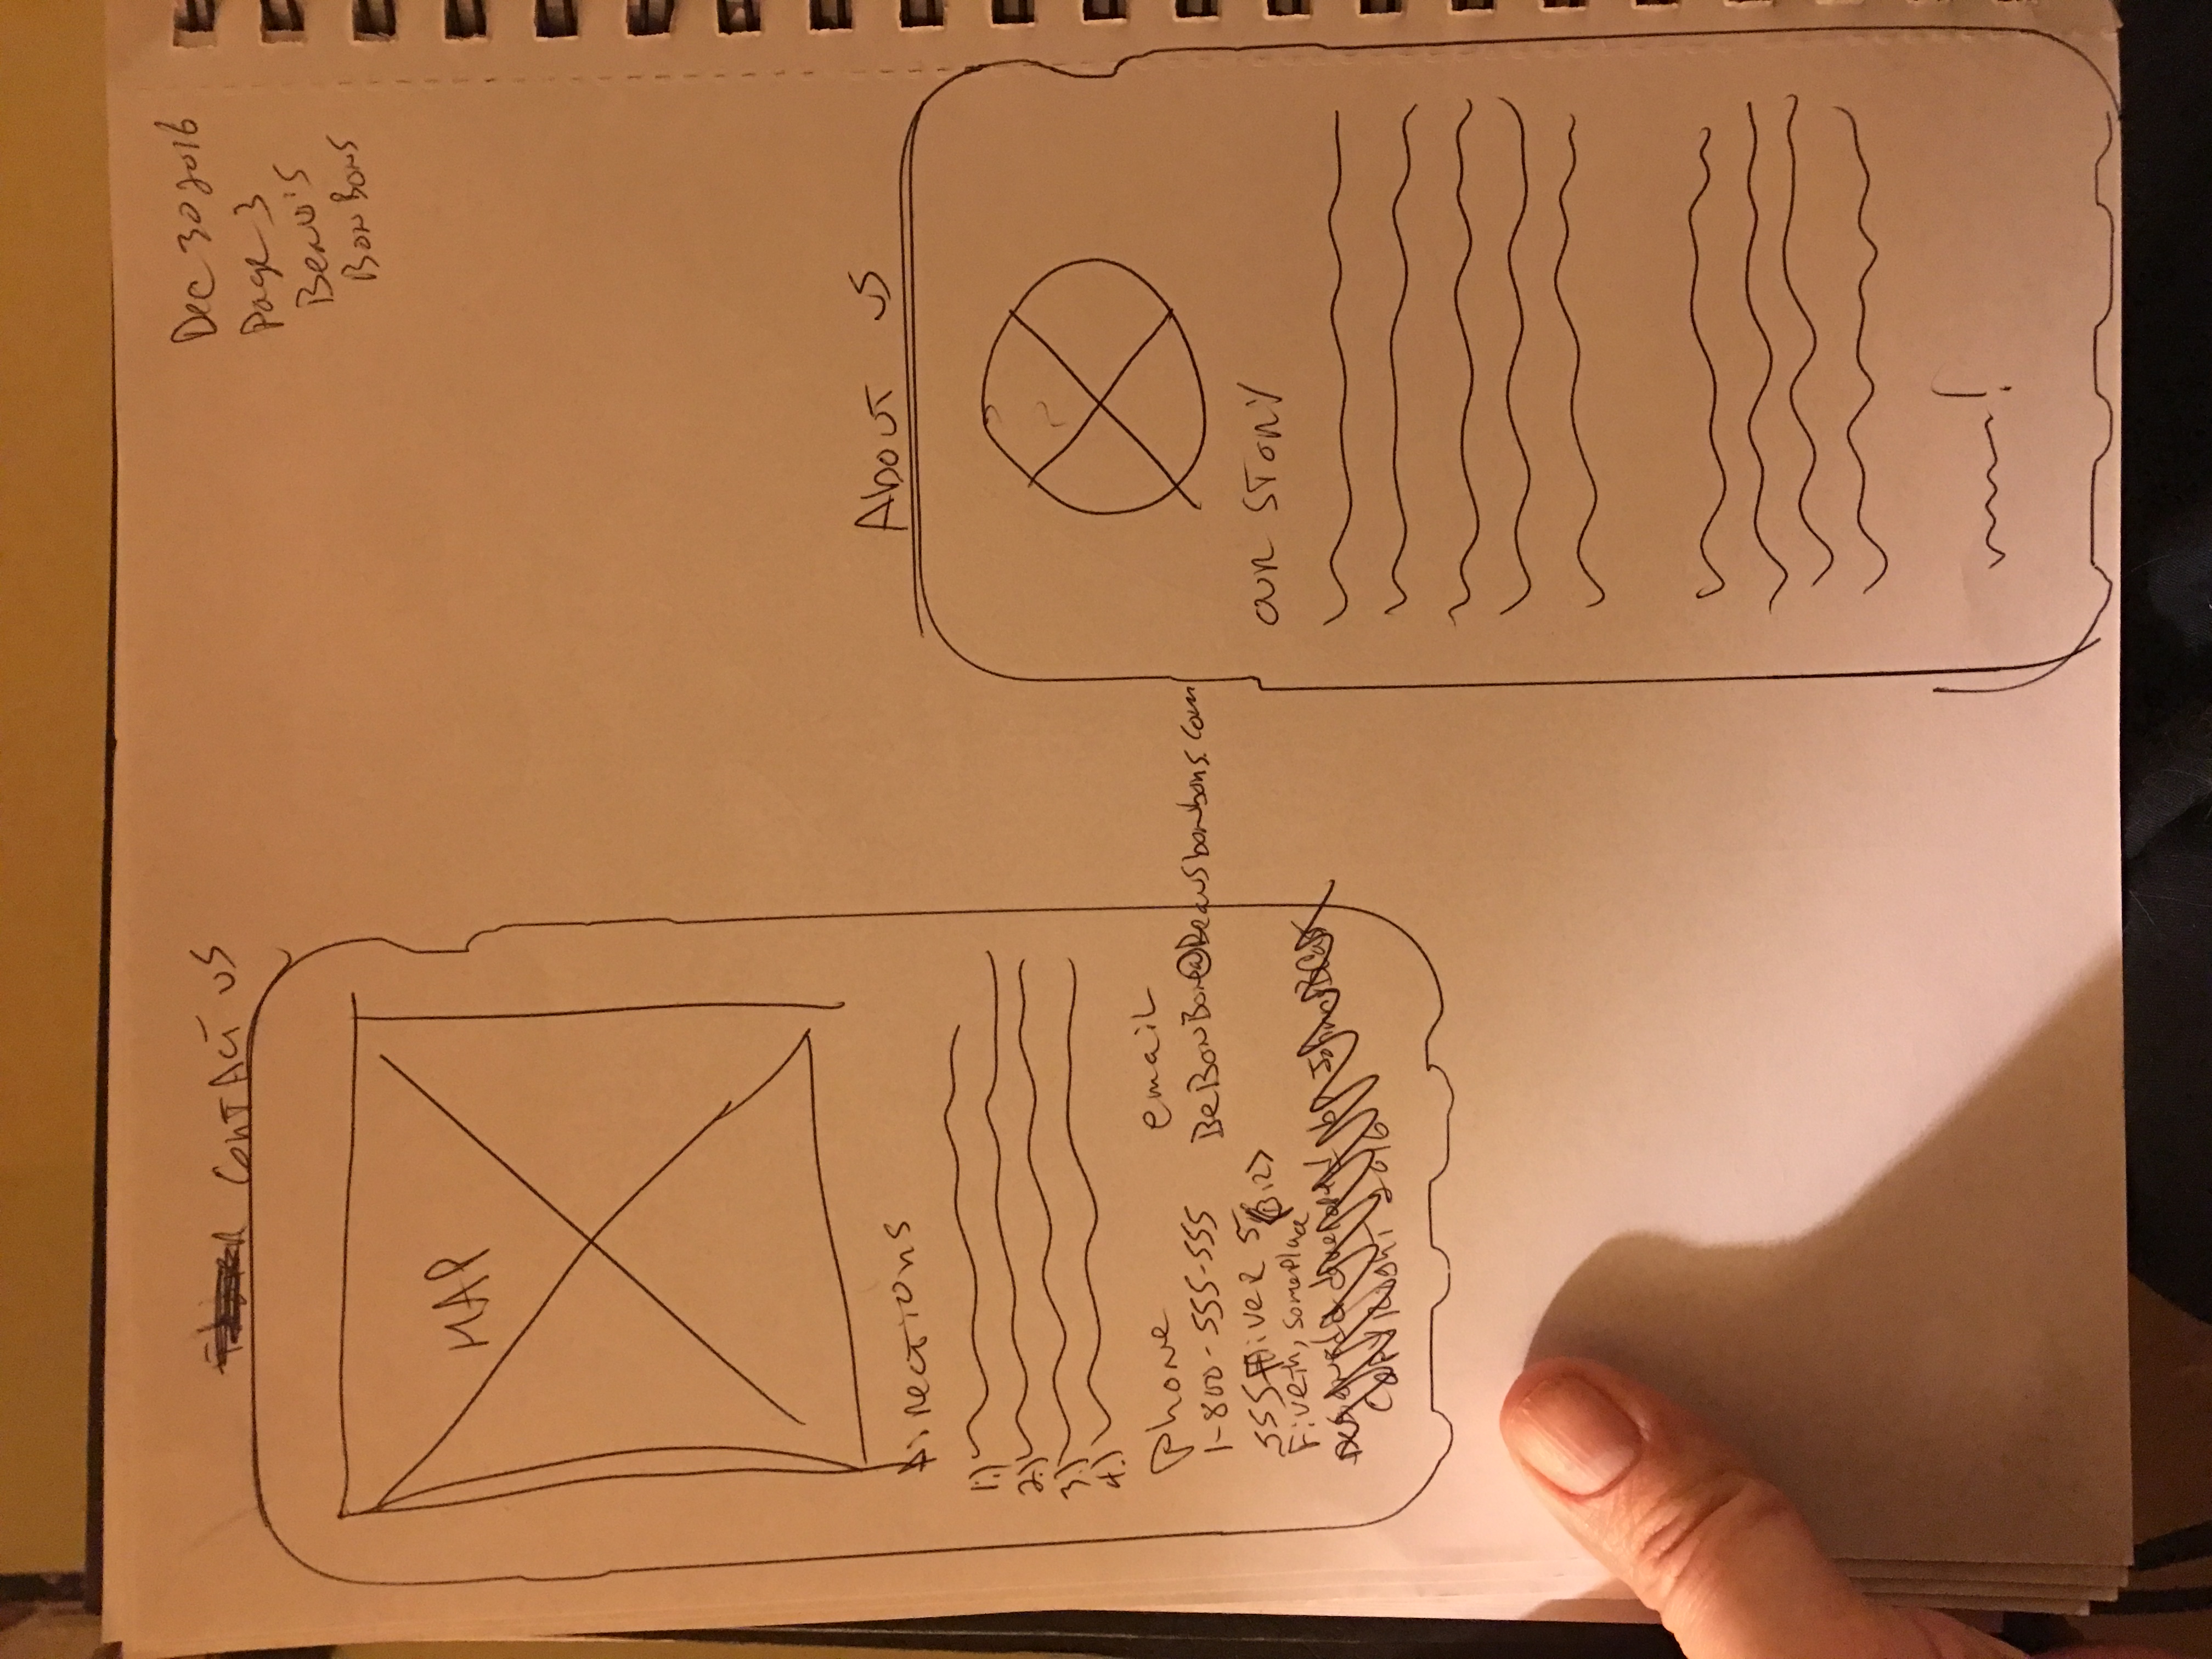 Contact us
Dec 30 2016
Page 3
Beau's
BonBons
MAP
Directions
1.)
2.)
3.)
4.)
Phone
1-800-555-555
email
BeBonBon@Beausbonbons.com
555
Fiveth, someplace
Copyright 2016
About us
our story
!